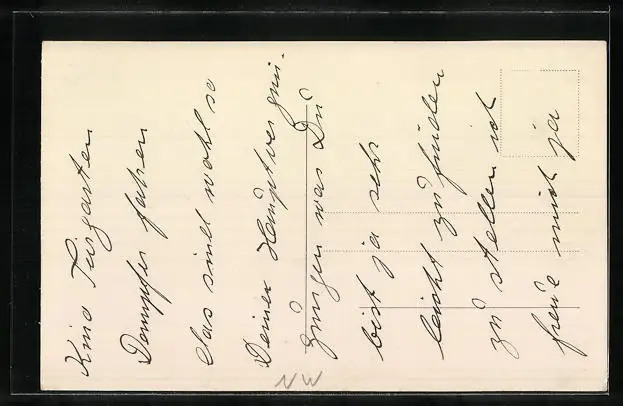 Kino Tiergarten
Dampfer fahren
das sind wohl so
Deiner Hauptvergnü-
gungen was Du
bist ja sehr
leicht zu finden
zu stellen ich
freue mich ja
NW